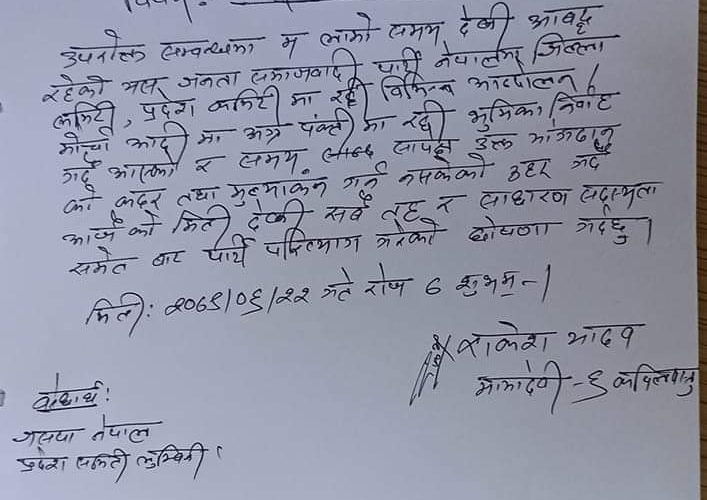 उपरोक्त सम्बन्धमा म लामो समय देखी आवद्ध
रहेको यस जनता समाजवादी पार्टी नेपालका जिल्ला
कमिटी, प्रदेश कमिटी मा रही विभिन्न आन्दोलन /
मोर्चा आदी मा अग्र पंक्ती मा रही भुमिका निर्वाह
गर्दै आएको र समय सापेक्ष उक्त योगदान
को कदर तथा मुल्यांकन गर्न नसकेको ठहर गर्दै
आजै को मिती देखी सबै तह र साधारण सदस्यता
समेत बाट पार्टी परित्याग गरेको घोषणा गर्दछु ।
मिती: २०७९/०६/२२ गते रोज ६ शुभम् -।
राकेश यादव
मायादेवी - ६ कपिलवस्तु
बोधार्थ:
जसपा नेपाल
प्रदेश समिती लुम्बिनी ।